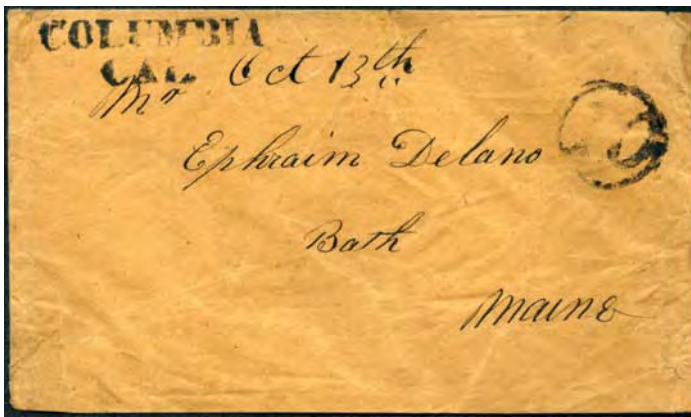 COLUMBIA
CAL. Oct 13th
Mr
Ephraim Delano
Bath
Maine